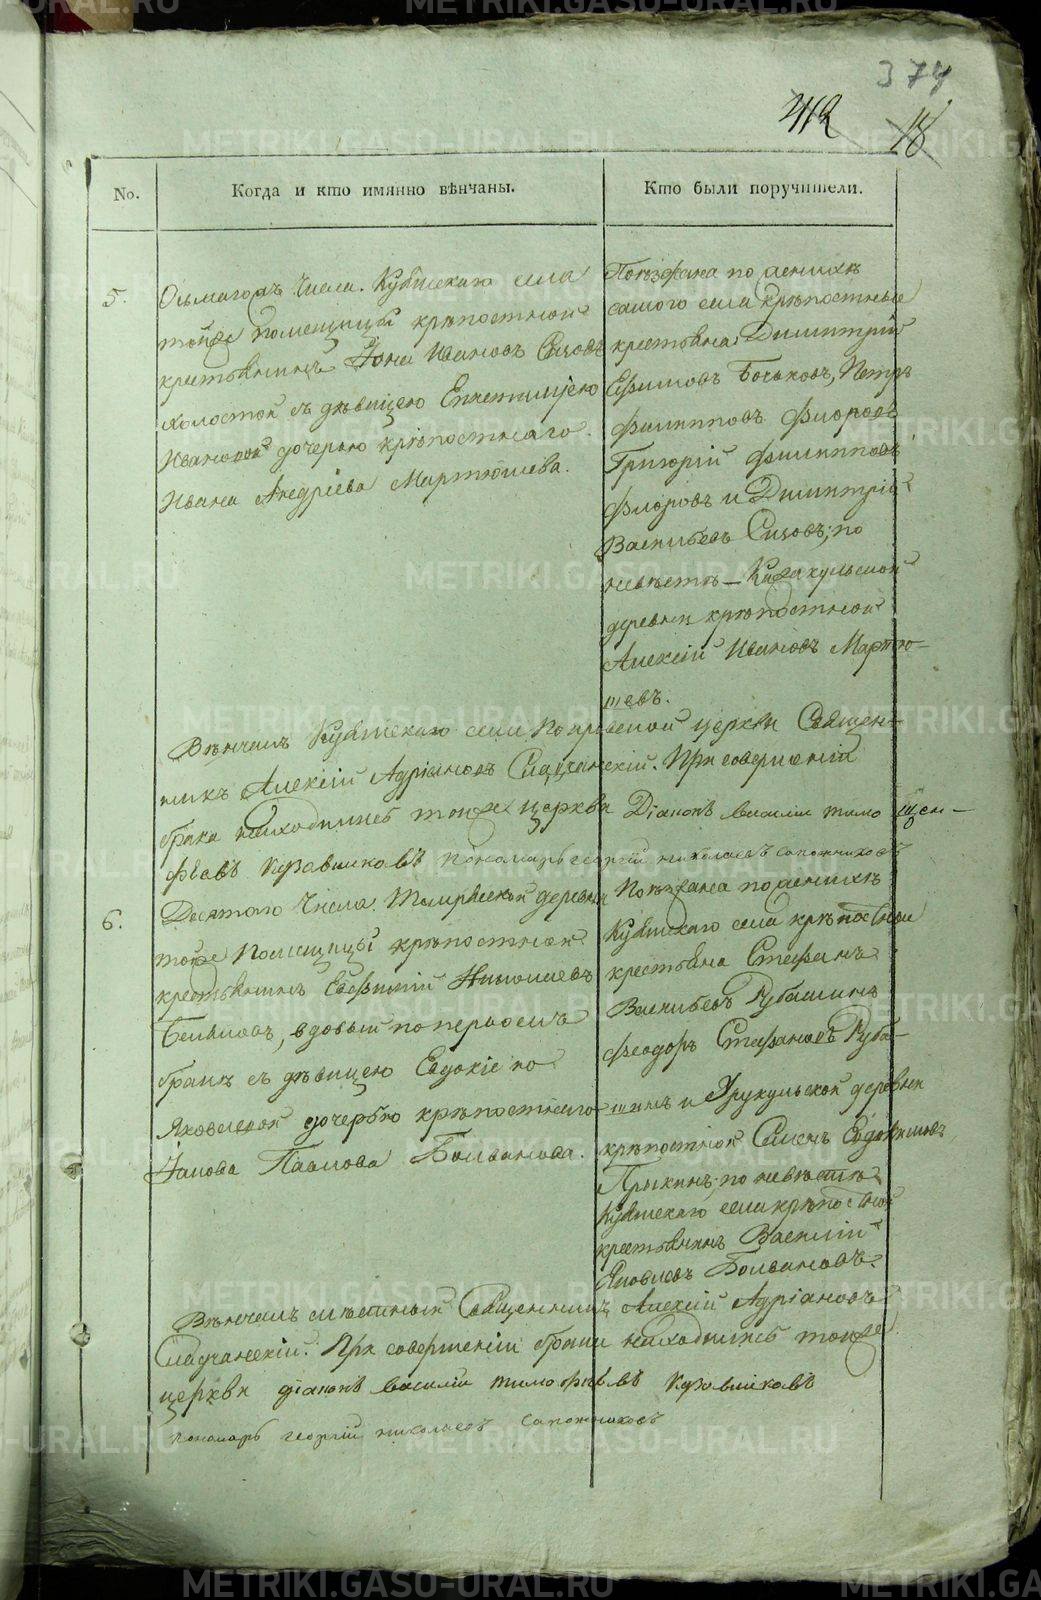 374
412
18
No.
Когда и кто имянно вѣнчаны.
Кто были поручители.
5.
Осьмагонадъ Числа. Куяшскаго села
тойже помещицы крѣпостной
крестьянинъ Иона Ивановъ Сизовъ
холостой съ дѣвицею Епистимiею
Ивановой дочерью крѣпостнаго
Ивана Андрiева Мартюшева.
Поѣзжана по женихѣ
самого села крѣпостные
крестьяна: Димитрiй
Ефимовъ Боськовъ, Петръ
Филипповъ Флоровъ
Григорiй Филипповъ
Флоровъ и Димитрiй
Васильевъ Сизовъ; по
невѣстѣ – Казакульской
деревни крѣпостной
Алексiй Ивановъ Мартю–
шевъ.
Вѣнчалъ Куяшскаго села Покровской церкви Священ–
никъ Алексiй Адрiановъ Сладчанскiй. При совершенiи
брака находились тойже церкви Дiаконъ василiй тимо
фѣевъ Кузовниковъ пономарь георгiй николаевъ сапожниковъ
6.
Десятого Числа. деревни
тойже Помещицы крѣпостной
крестьянинъ Евфимiй Николаевъ
вдовый по первомъ
бракѣ съ дѣвицею Евдокiею
Яковлевой дочерью крѣпостнаго
Iакова Павлова Болванова.
Поѣзжана по женихѣ
Куяшскаго села крѣпостные
крестьяна Стефанъ
Васильевъ Рубашинъ
Феодоръ Стефановъ Руба–
шинъ и деревни
крѣпостной Семенъ Евдокимовъ
по невѣстѣ
Куяшскаго села крѣпостной
крестьянинъ Василiй
Яковлевъ Болвановъ.
Вѣнчалъ мѣстный Священникъ Алексiй Адрiановъ
Сладчанскiй. При совершенiи брака находились тойже
церкви дiаконъ василiй тимофѣевъ Кузовниковъ
пономарь георгiй николаевъ сапожниковъ
METRIKI.GASO-URAL.RU